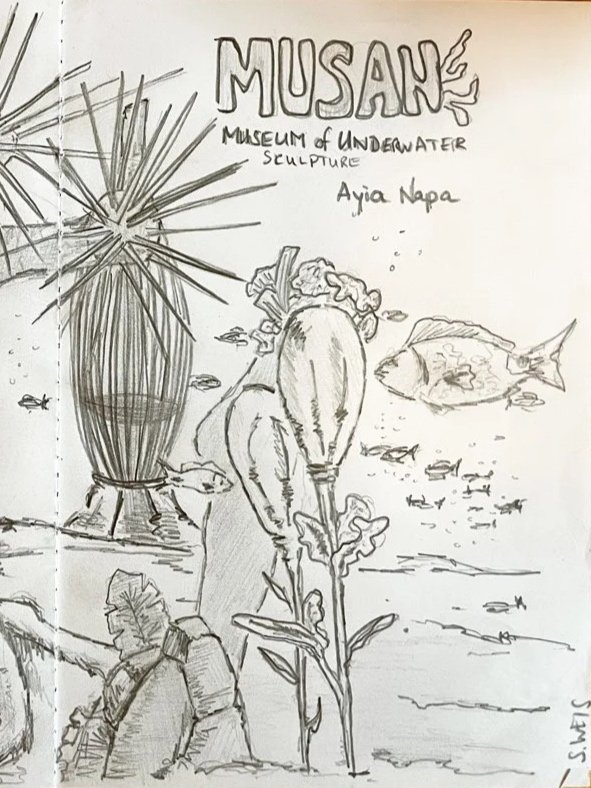 MUSAN
MUSEUM of UNDERWATER
SCULPTURE
Ayia Napa
S. WEIS